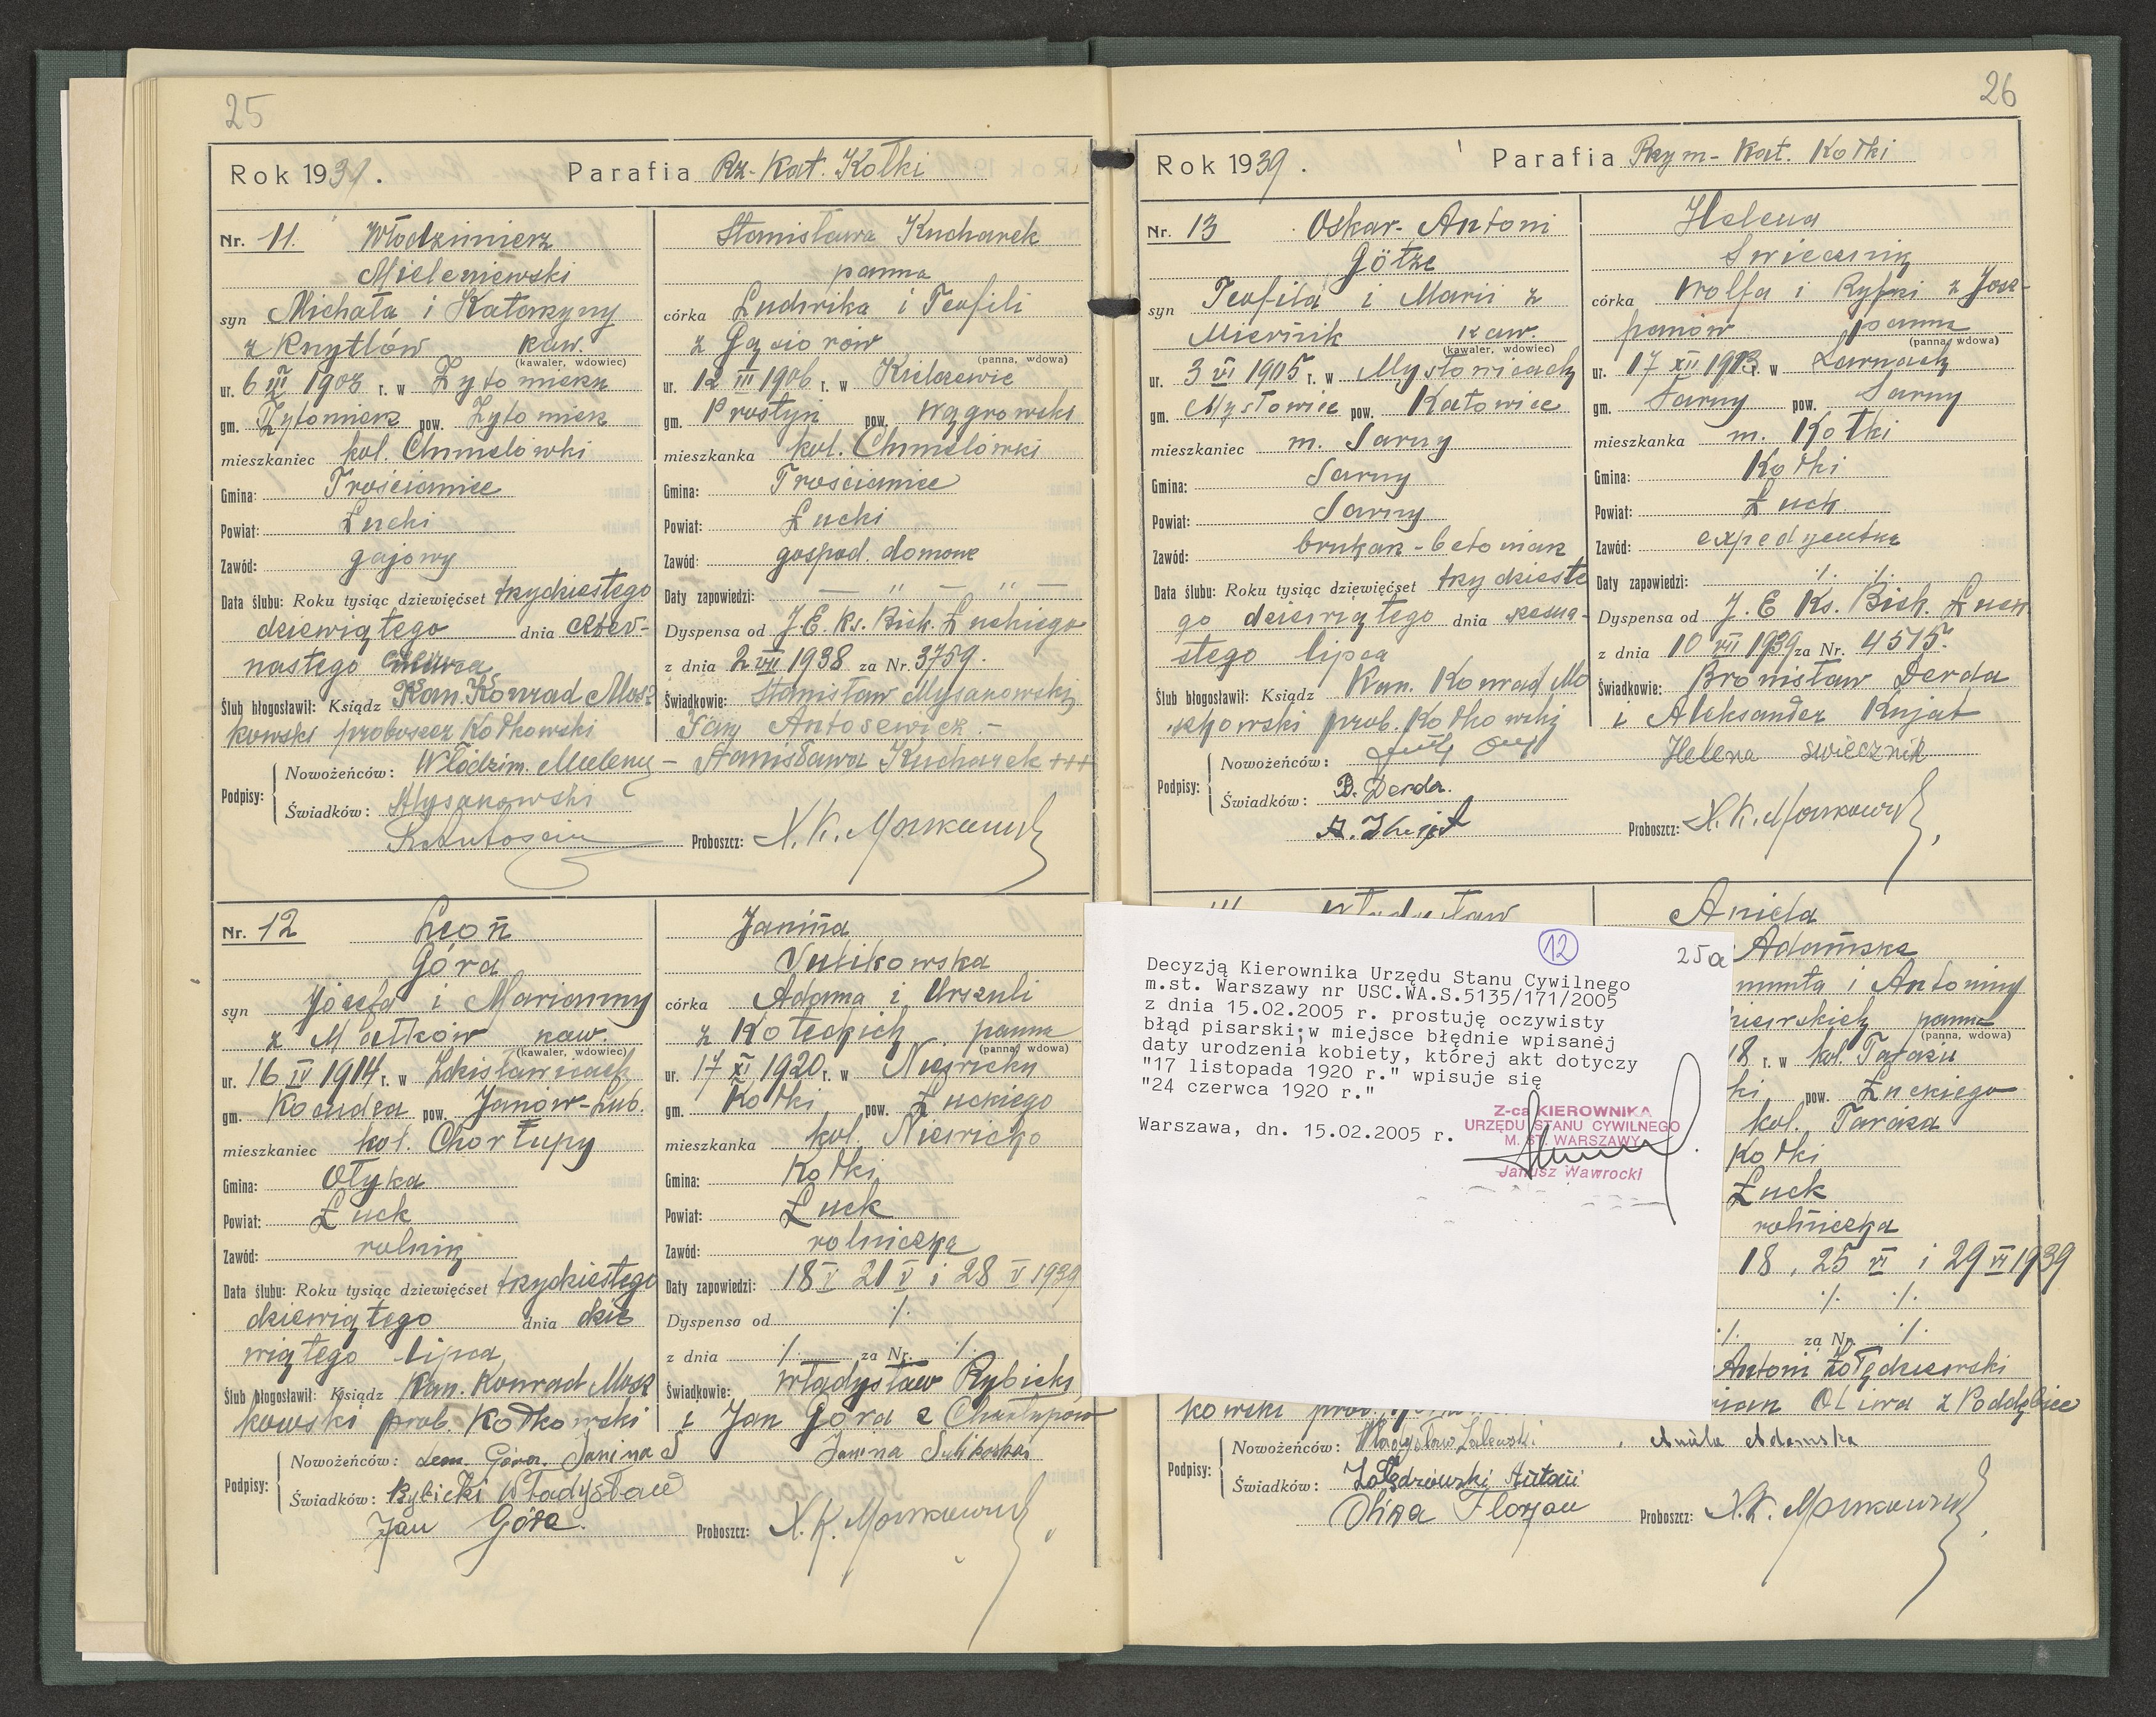 25
Rok 1939. Parafia Rz.-Kat. Kołki
Nr. 11. Włodzimierz
Mieleniewski
syn Michała i Katarzyny
z Knytlów kaw.
(kawaler, wdowiec)
ur. 6 1908 r. w Żytomierz
gm. Żytomierz pow. Żytomierz
mieszkaniec kol. Chmielówki
Gmina: Trościaniec
Powiat: Łucki
Zawód: gajowy
Data ślubu: Roku tysiąc dziewięćset trzydziestego
dziewiątego dnia czter-
nastego
Ślub błogosławił: Ksiądz Kan. Konrad Mosz-
kowski proboszcz Kołkowski
Stanisława Kucharek
panna
córka Ludwika i Teofili
z Gąsiorów
(panna, wdowa)
ur. 12 III 1906 r. w
gm. Prostyń pow. Węgrowski
mieszkanka kol. Chmielówki
Gmina: Trościaniec
Powiat: Łucki
Zawód: gospod. domowe
Daty zapowiedzi: — " — " —
Dyspensa od J. E. Ks. Bisk. Łuckiego
z dnia 2 VIII 1938 za Nr. 3759.
Świadkowie: Stanisław Mysakowski
Antosewicz –
Podpisy: Nowożeńców: Włodzim. – Stanisława Kucharek +++
Świadków: Mysakowski
Proboszcz: X. K. Moszkowski
Nr. 12 Leon
Góra
syn Józefa i Marianny
z Małków kaw.
(kawaler, wdowiec)
ur. 16 IV 1914 r. w Zdzisławicach
gm. Kocudza pow. Janów-Lub.
mieszkaniec kol. Chorłupy
Gmina: Ołyka
Powiat: Łuck
Zawód: rolnik
Data ślubu: Roku tysiąc dziewięćset trzydziestego
dziewiątego dnia dzie
wiątego lipca
Ślub błogosławił: Ksiądz Kan. Konrad Mosz
kowski prob. Kołkowski
Janina
Sulikowska
córka Adama i Urszuli
z Kołeckich panna
(panna, wdowa)
ur. 17 XI 1920 r. w
gm. Kołki pow. Łuckiego
mieszkanka kol.
Gmina: Kołki
Powiat: Łuck
Zawód: rolniczka
Daty zapowiedzi: 18 V 21 V i 28 V 1939
Dyspensa od ./.
z dnia ./. za Nr. ./.
Świadkowie: Władysław Rybicki
i Jan Góra z Chorłupów
Podpisy: Nowożeńców: Leon Góra. Janina S Janina Sulikoska
Świadków: Rybicki Władysław
Jan Góra.
Proboszcz: X. K. Moszkowski
26
Rok 1939. Parafia Rzym-Kat. Kołki
Nr. 13 Oskar-Antoni
Götze
syn Teofila i Marii z
Miernik kaw.
(kawaler, wdowiec)
ur. 3 VI 1905 r. w Mysłowicach
gm. Mysłowice pow. Katowice
mieszkaniec m. Sarny
Gmina: Sarny
Powiat: Sarny
Zawód: brukarz-betoniarz
Data ślubu: Roku tysiąc dziewięćset trzydzieste
go dziewiątego dnia szesna-
stego lipca
Ślub błogosławił: Ksiądz Kan. Konrad Mo
szkowski prob. Kołkowski
Helena
Swiecznik
córka Wolfa i Ryfki z Josz-
panów panna
(panna, wdowa)
ur. 17 XII 1913 r. w Sarnach
gm. Sarny pow. Sarny
mieszkanka m. Kołki
Gmina: Kołki
Powiat: Łuck
Zawód: expedjentka
Daty zapowiedzi: ./. ./.
Dyspensa od J. E Ks. Bisk. Łuck
z dnia 10 VII 1939 za Nr. 4515.
Świadkowie: Bronisław Derda
i Aleksander Kujat
Podpisy: Nowożeńców: Helena swiecznik
Świadków: B. Derda.
A. Kujat
Proboszcz: X. K. Moszkowski
Władysław
Aniela
Adamska
i Antoniny
panna
(panna, wdowa)
18 r. w kol. Taraża
ki pow. Łuckiego
kol. Taraża
Kołki
Łuck
rolniczka
18, 25 VI i 29 VI 1939
./. ./.
./. za Nr. ./.
Antoni Żołędziewski
Oliwa z Poddębiec
kowski prob.
Podpisy: Nowożeńców: Władysław Zalewski Aniela Adamska
Świadków: Antoni
Oliwa Florjan
Proboszcz: X. K. Moszkowski
12
25a
Decyzją Kierownika Urzędu Stanu Cywilnego
m.st. Warszawy nr USC.WA.S.5135/171/2005
z dnia 15.02.2005 r. prostuję oczywisty
błąd pisarski; w miejsce błędnie wpisanej
daty urodzenia kobiety, której akt dotyczy
"17 listopada 1920 r." wpisuje się
"24 czerwca 1920 r."
Warszawa, dn. 15.02.2005 r.
Z-ca KIEROWNIKA
URZĘDU STANU CYWILNEGO
M. ST. WARSZAWY
Janusz Wawrocki